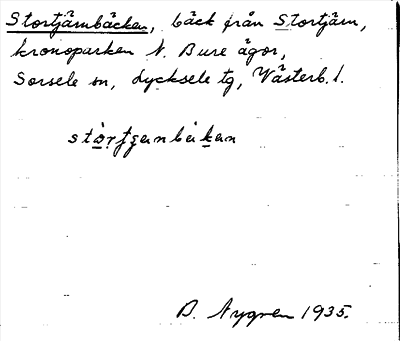 Stortjärnbäcken, bäck från Stortjärn,
kronoparken N. Bure ägor,
Sorsele sn, Lycksele tg, Västerb. l.
B. Nygren 1935.